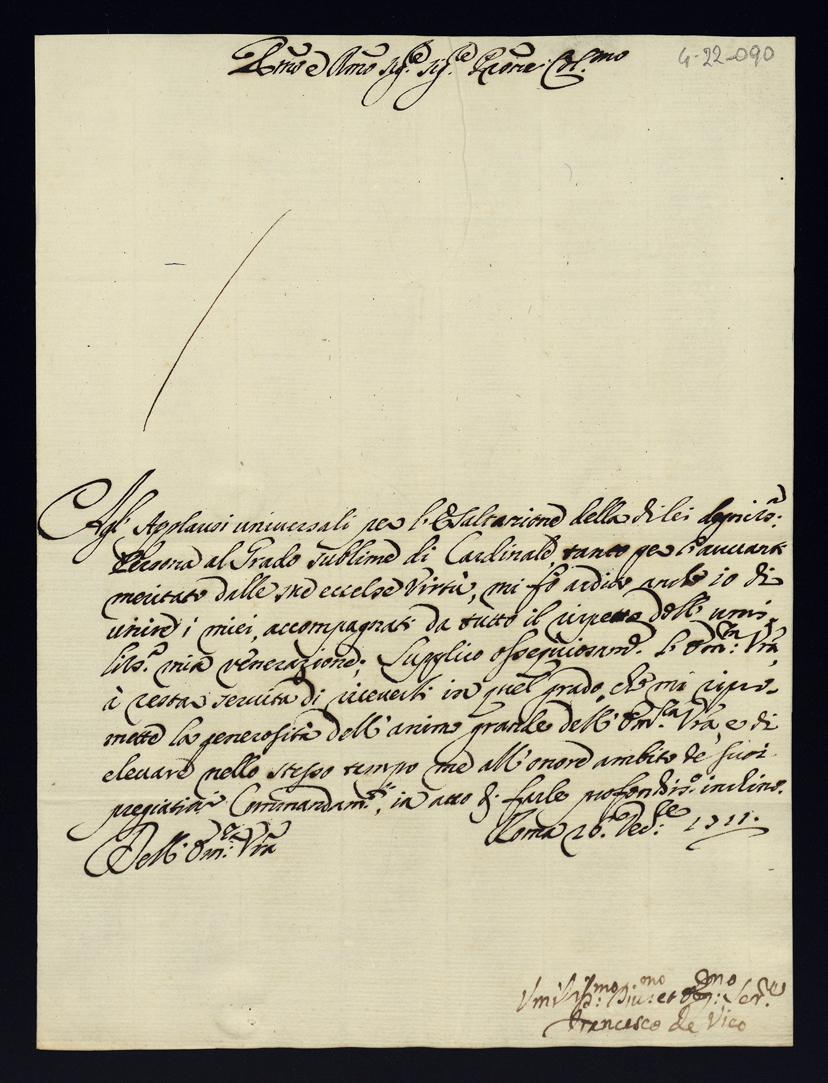 Em̃o e Rm̃o Sig.re Sig.re Prõne Col.mo
4-22-090
Agl' Applausi universali per l'Esaltazione della di lei degnis.a
Persona al Grado sublime di Cardinale, tanto per l'avvanti
meritato dalle sue eccelse Virtù, mi fò ardito anch'io di
unire i miei, accompagnati da tutto il rispetto dell' umi-
lis.a mia venerazione; Supplico ossequiosam.te l'Em̃.za Vrã
à restar servita di riceverli in quel grado, che mi ripro-
mette la generosità dell' animo grande dell' Em̃.za Vrã e di
elevare nello stesso tempo me all' onore ambito de' suoi
pregiatiss.i Commandam.ti, in atto di farle profondis.o inchino.
Dell' Em̃.za Vrã
Roma 26 1711.
Umiliss.mo Div.mo et Ob.mo Ser.re
Francesco de Vico